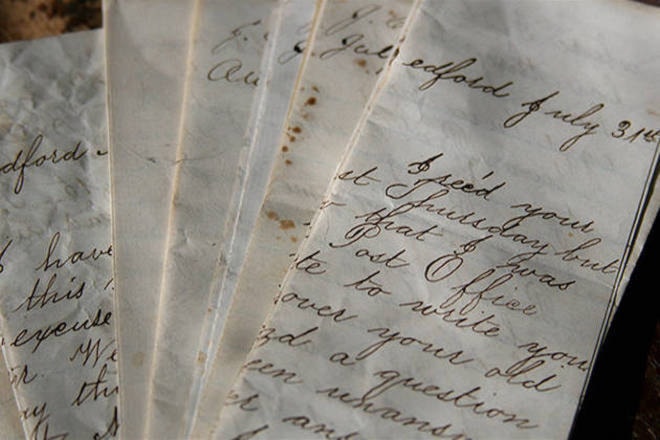 dford
I have
this
excuse
We
Au
Jul
edford July 31st
I rec'd your
st Thursday but
that I was
Post Office
te to write you
over your old
d a question
een unans